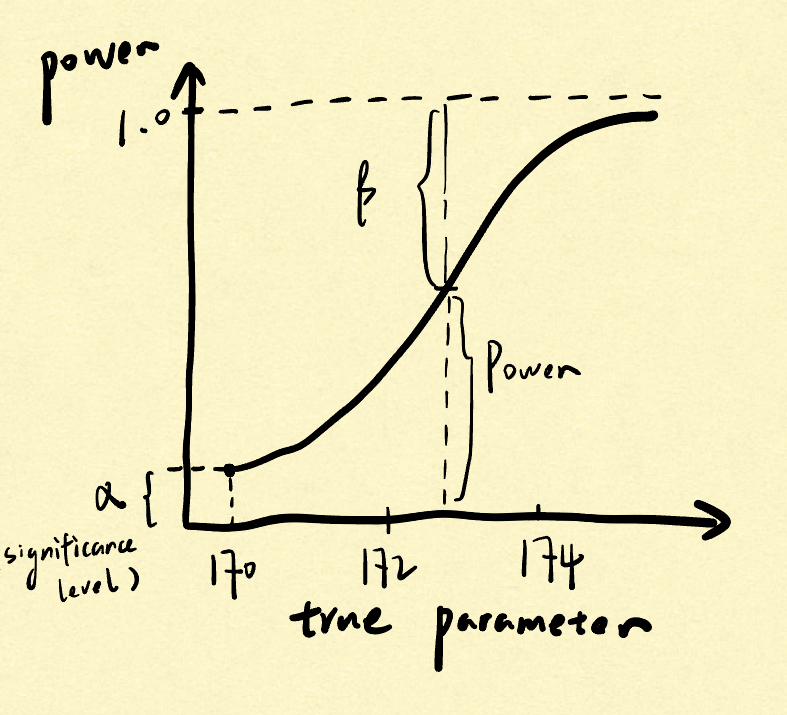 power
1.0
β
Power
α
significance
level)
170
172
174
true parameter